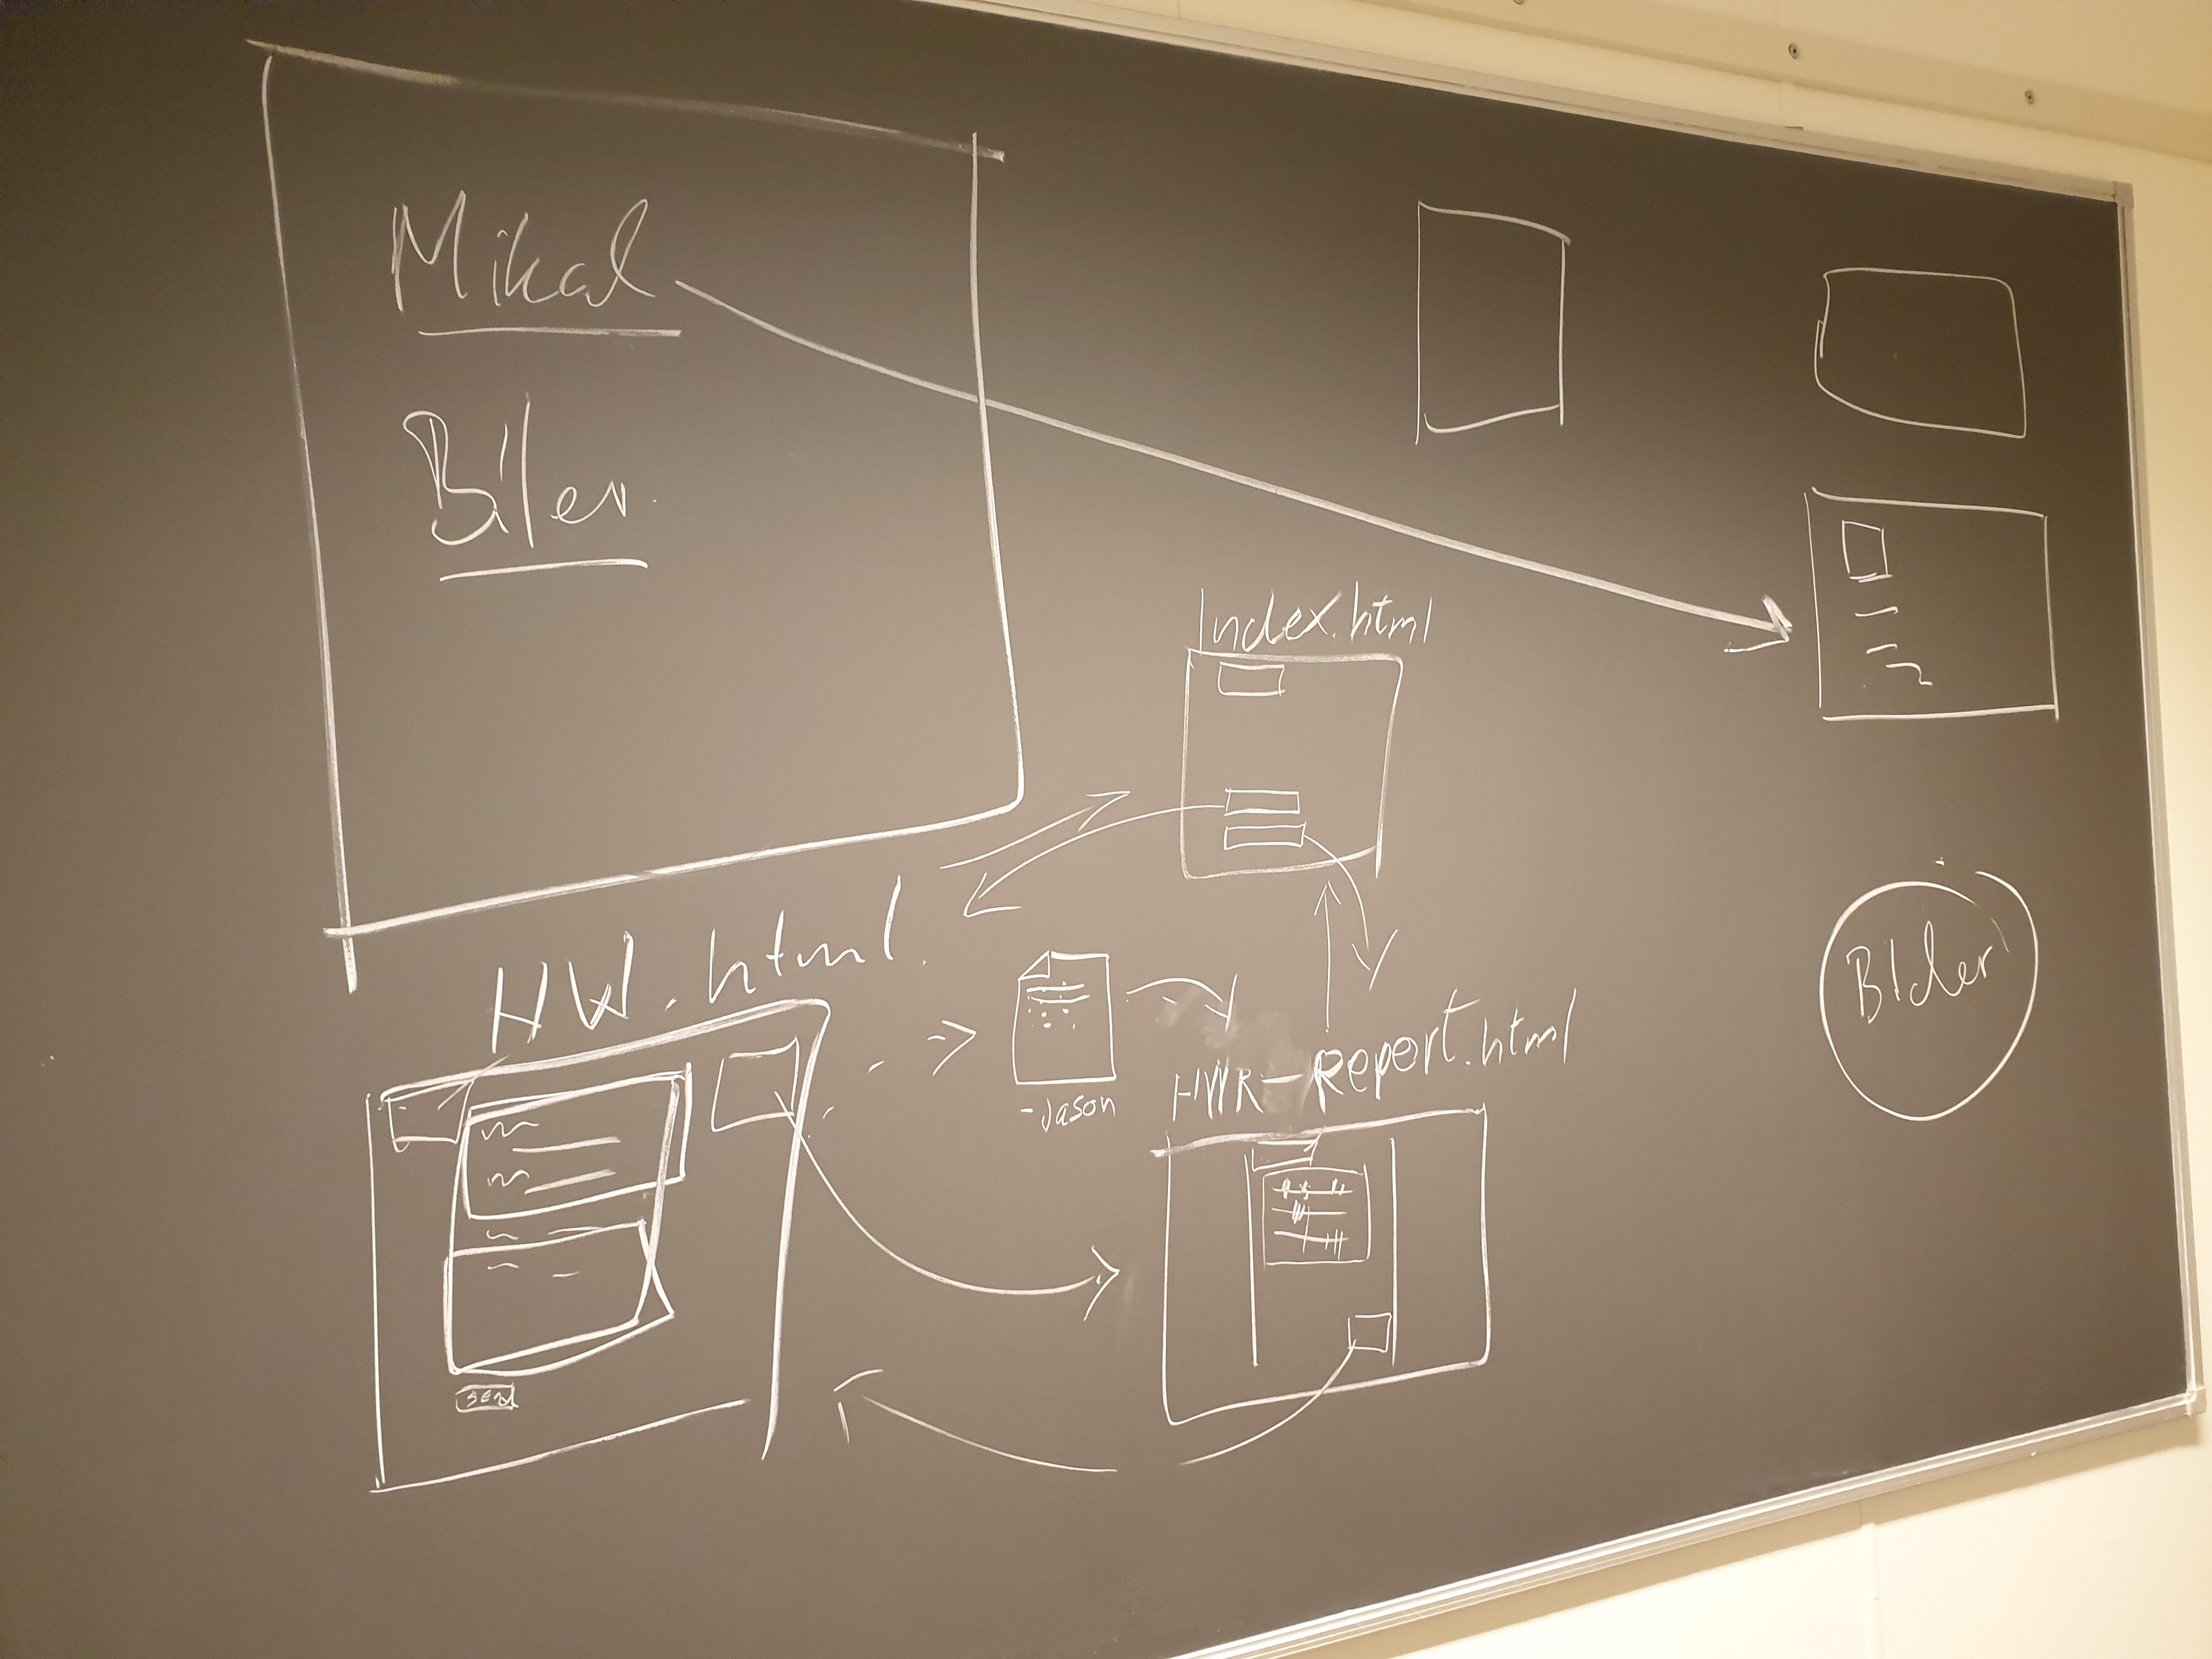 Mikal
Biler
Index.html
HW.html
-Jason
HWR-Report.html
Bilder
send